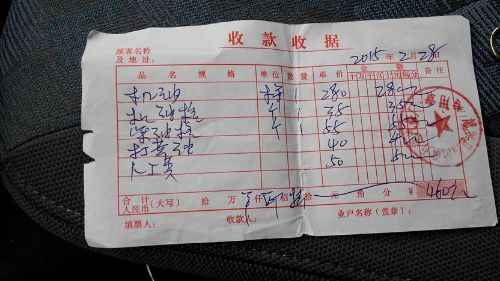 收款收据
顾客名称
及地址： 2015年2月28日
品名规格 单位 数量 单价 金额 备注
机油 1 280 280元
机油格 个 1 35 35元
柴油格 个 1 55 55
打黄油 40 40元
人工费 50 50元
合计
人民币（大写） 拾 万 仟 佰 拾 元 角 分 ¥ 460元
填票人： 收款人： 业户名称（盖章）：